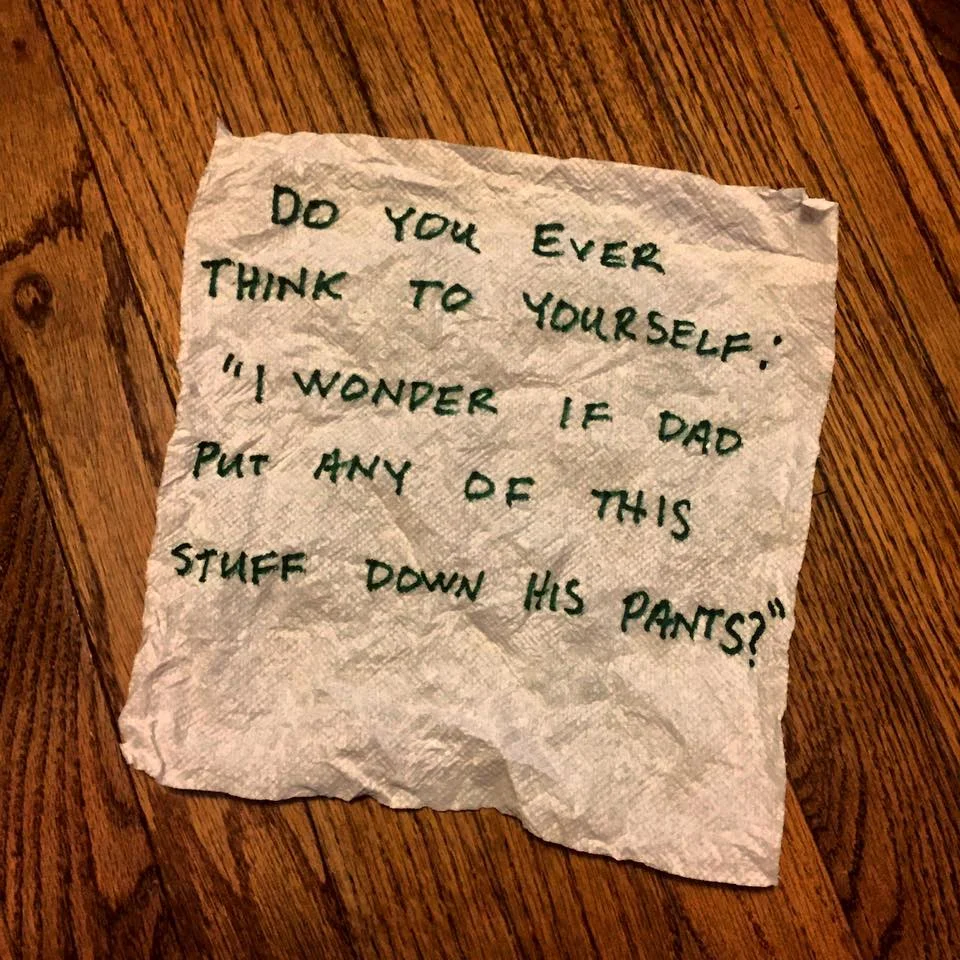 DO YOU EVER
THINK TO YOURSELF:
"I WONDER IF DAD
PUT ANY OF THIS
STUFF DOWN HIS PANTS?"